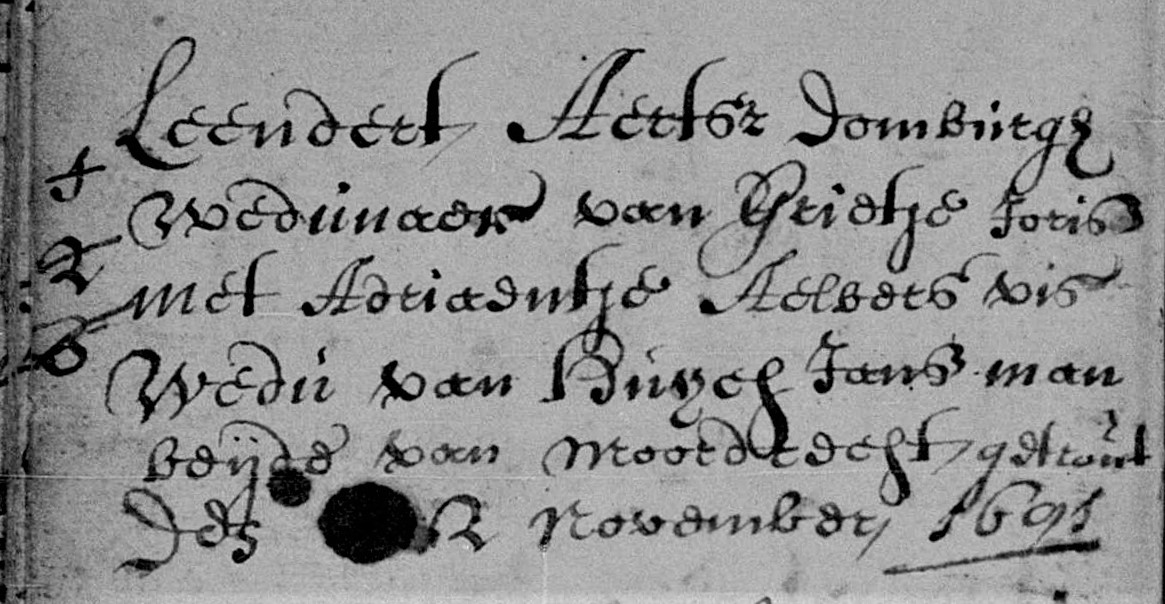 Leendert Aertsz Domburgh
Wedúnaer van Grietje Joris
met Adriaentje Aelbers vis
Wedú van Húygh Jans man
beijde van Moordrecht getroút
Des 2 November 1691